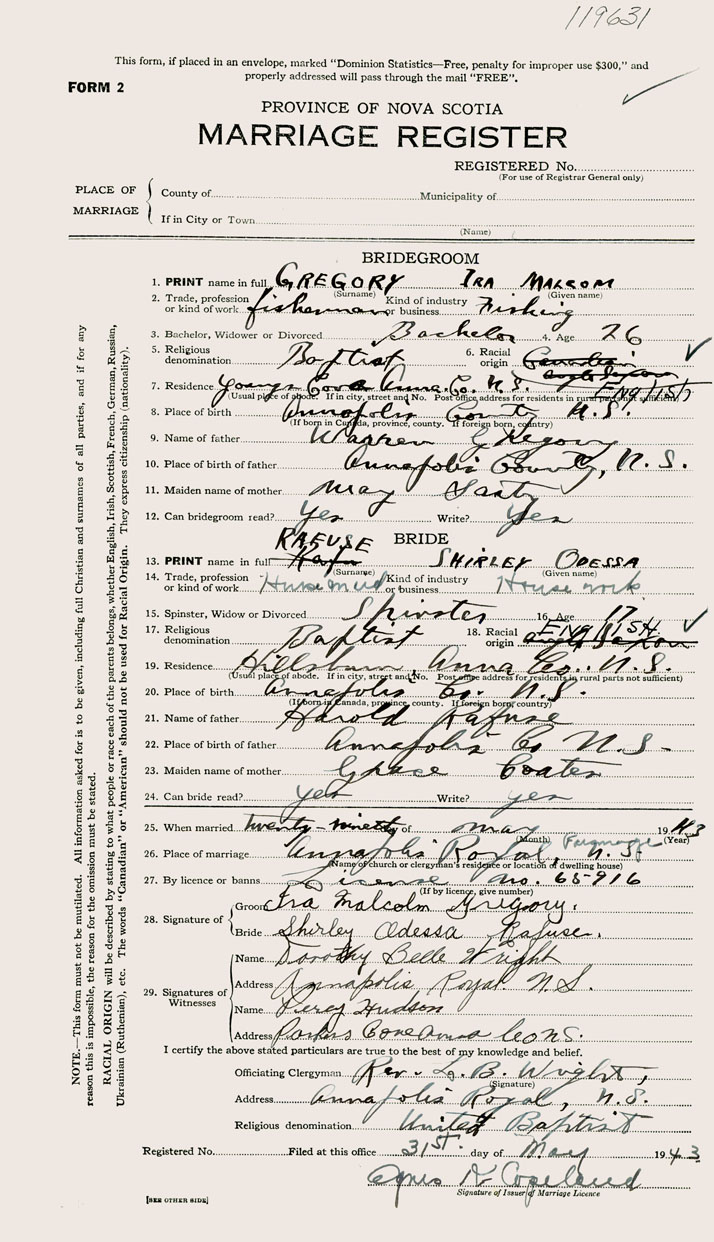 119631
This form, if placed in an envelope, marked "Dominion Statistics—Free, penalty for improper use $300," and
properly addressed will pass through the mail "FREE".
FORM 2
PROVINCE OF NOVA SCOTIA
MARRIAGE REGISTER
REGISTERED No.
(For use of Registrar General only)
PLACE OF MARRIAGE
County of Municipality of
If in City or Town
(Name)
BRIDEGROOM
1. PRINT name in full GREGORY IRA MALCOM
(Surname) (Given name)
2. Trade, profession or kind of work fisherman Kind of industry or business Fishing
3. Bachelor, Widower or Divorced Bachelor 4. Age 26
5. Religious denomination Baptist 6. Racial origin Canadian ENGLISH
7. Residence Youngs Cove Anna. Co. N.S.
(Usual place of abode. If in city, street and No. Post office address for residents in rural parts not sufficient)
8. Place of birth Annapolis County N.S.
(If born in Canada, province, county. If foreign born, country)
9. Name of father Warren Gregory
10. Place of birth of father Annapolis County, N.S.
11. Maiden name of mother May
12. Can bridegroom read? Yes Write? Yes
BRIDE
RAFUSE
13. PRINT name in full SHIRLEY ODESSA
(Surname) (Given name)
14. Trade, profession or kind of work Housemaid Kind of industry or business House work
15. Spinster, Widow or Divorced Spinster 16. Age 17
17. Religious denomination Baptist 18. Racial origin ENGLISH anglo Saxon
19. Residence Hillsburn, Anna Co., N.S.
(Usual place of abode. If in city, street and No. Post office address for residents in rural parts not sufficient)
20. Place of birth Annapolis Co. N.S.
(If born in Canada, province, county. If foreign born, country)
21. Name of father Harold Rafuse
22. Place of birth of father Annapolis Co N.S.
23. Maiden name of mother Grace Coates
24. Can bride read? yes Write? yes
25. When married twenty-ninth of May 1943
(Month) (Year)
26. Place of marriage Annapolis Royal, N.S. Parsonage
(Name of church or clergyman's residence or location of dwelling house)
27. By licence or banns License No. 65-916
(If by licence, give number)
28. Signature of
Groom Ira Malcolm Gregory.
Bride Shirley Odessa Rafuse.
29. Signatures of Witnesses
Name Dorothy Belle Wright
Address Annapolis Royal N.S.
Name Percy Hudson
Address Parkers Cove Anna Co N.S.
I certify the above stated particulars are true to the best of my knowledge and belief.
Officiating Clergyman Rev. L. B. Wright,
(Signature)
Address Annapolis Royal, N.S.
Religious denomination United Baptist
Registered No. Filed at this office 31st. day of May 1943
Agnes N Copeland
Signature of Issuer of Marriage Licence
[SEE OTHER SIDE]
NOTE.—This form must not be mutilated. All information asked for is to be given, including full Christian and surnames of all parties, and if for any
reason this is impossible, the reason for the omission must be stated.
RACIAL ORIGIN will be described by stating to what people or race each of the parents belongs, whether English, Irish, Scottish, French, German, Russian,
Ukrainian (Ruthenian), etc. The words "Canadian" or "American" should not be used for Racial Origin. They express citizenship (nationality).